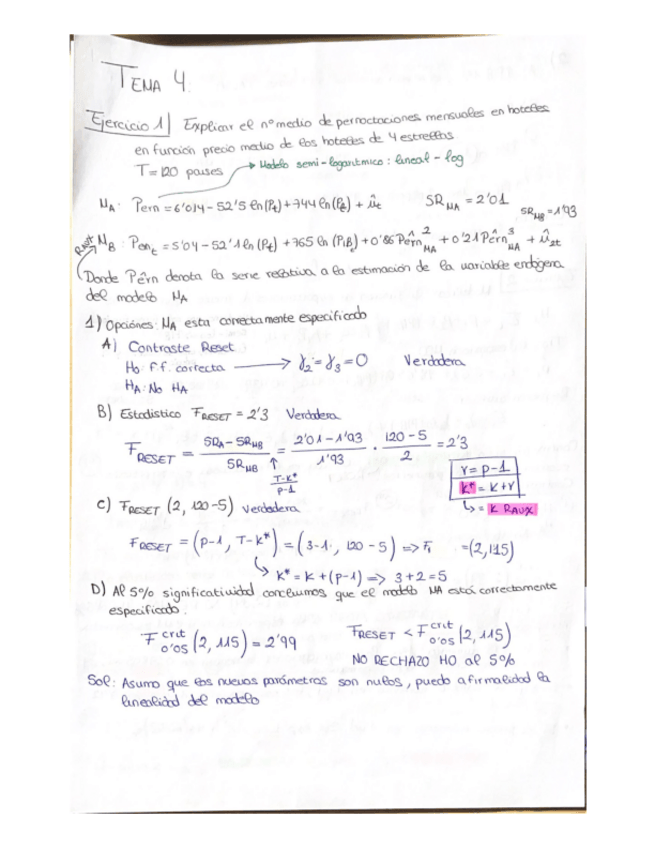 TEMA 4.
Ejercicio 1 | Explicar el nº medio de pernoctaciones mensuales en hoteles
en función precio medio de los hoteles de 4 estrellas
T = 120 países → Modelo semi-logarítmico: lineal - log
MA: Pern = 6'014 - 52'5 ln(Pt) + 744 ln(Pt) + ût SRMA = 2'01
SRMB = 1'93
MB: Pernt = 5'04 - 52'1 ln(Pt) + 765 ln(PiBt) + 0'86 Pêrn²MA + 0'21 Pêrn³MA + û2t
Donde Pêrn denota la serie relativa a la estimación de la variable endógena
del modelo MA
1) Opciones: MA esta correctamente especificado
A) Contraste Reset
H0: f.f. correcta → γ2 = γ3 = 0 Verdadera
HA: No HA
B) Estadístico FRESET = 2'3 Verdadera
FRESET = (SRA - SRMB) / SRMB = (2'01 - 1'93) / 1'93 · (120 - 5) / 2 = 2'3
↑
T-K* / p-1
r = p-1
k* = k+r
↳ = K RAUX
C) FRESET (2, 120-5) Verdadera
FRESET = (p-1, T-K*) = (3-1, 120-5) => F = (2,115)
↳ K* = K + (p-1) => 3+2 = 5
D) Al 5% significatividad concluimos que el modelo MA está correctamente
especificado.
F crit 0'05 (2,115) = 2'99 FRESET < F crit 0'05 (2,115)
NO RECHAZO H0 al 5%
Sol: Asumo que los nuevos parámetros son nulos, puedo afirmalidad la
linealidad del modelo